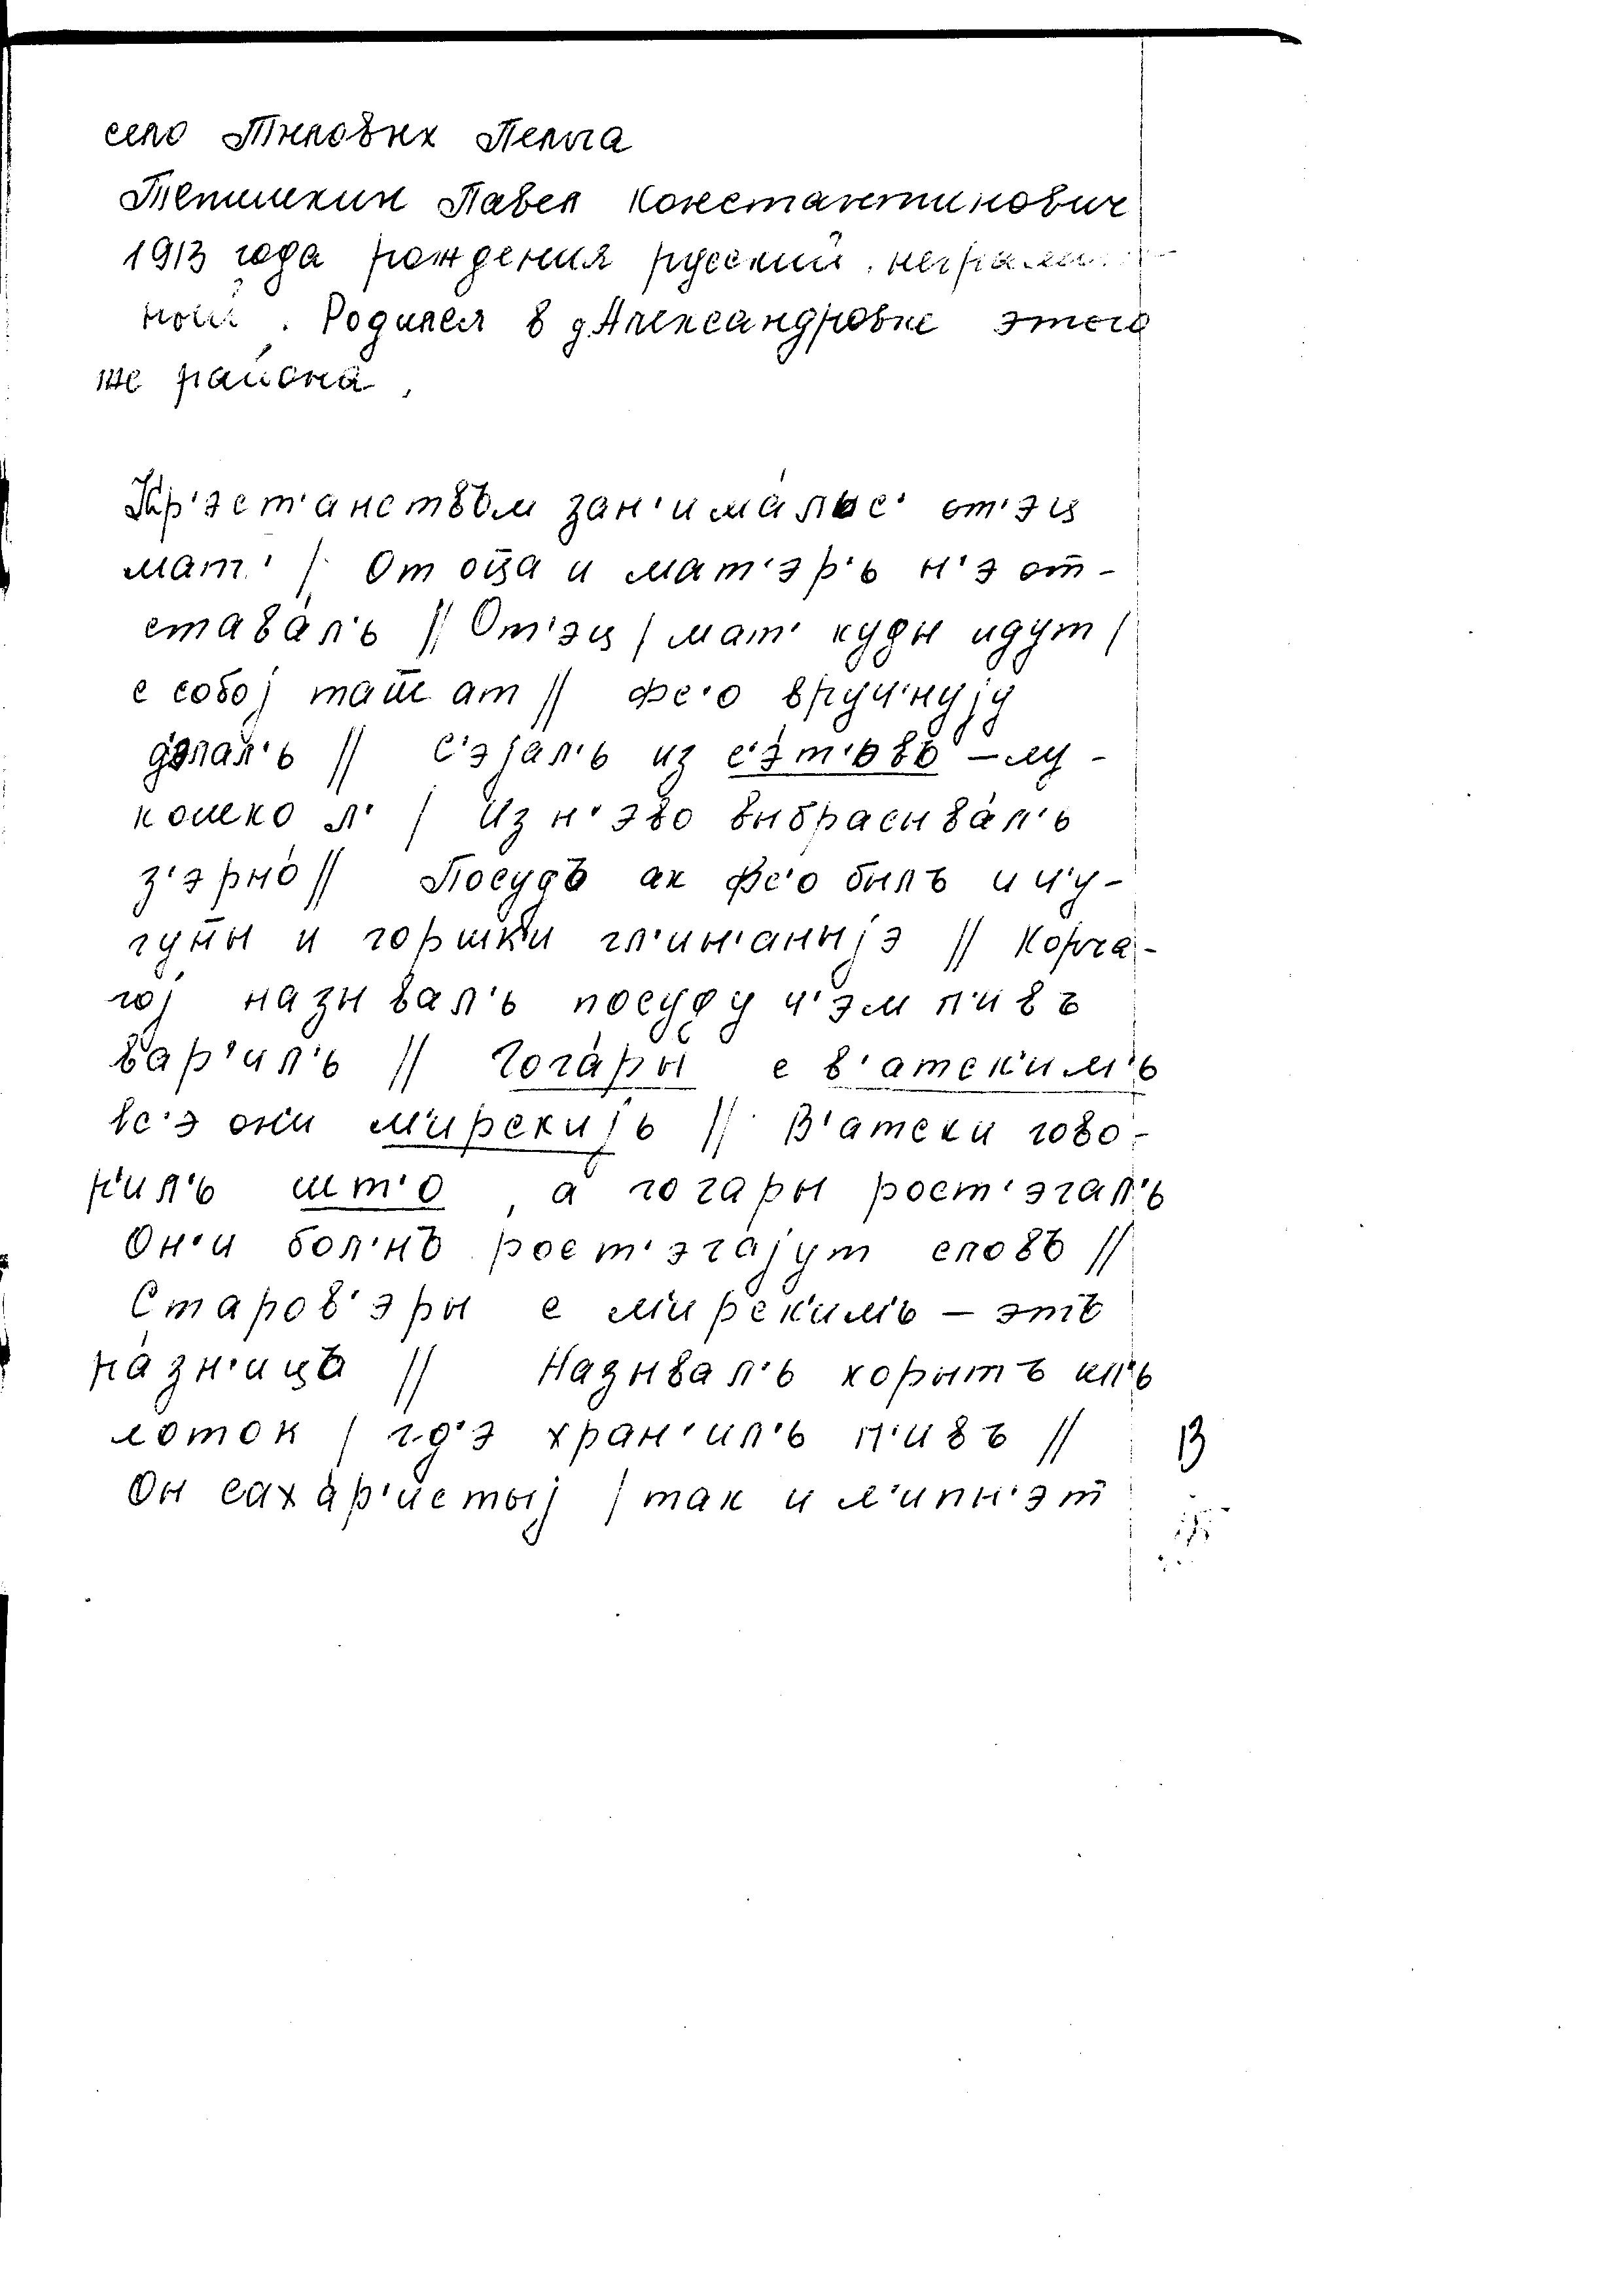 село Тыловыл Пельга
Тепишкин Павел Константинович
1913 года рождения русский, неграмот-
ной. Родился в д.Александровке этого
же района.
Кр'эст'анствъм зан'има́лъс' от'эц
мат' / От оц̅а и мат'эр'ь н'э от-
става́л'ь // От'эц / мат' куды идут /
с собој таш̅ат // Фс'о вруч'нују
д'элал'ь // С'эјал'ь из с'э́т'ьвъ – лу-
кошко л' / Из н'эво выбрасыва́л'ь
з'эрно́ // Посудъ ак фс'о былъ и ч'у-
гун̅ы и горшк'и гл'ин'аныјэ // Корча-
гој называл'ь посуду ч'эм п'ивъ
вар'ил'ь // Гога́ры с в'атск'им'ь
вс'э он'и м'ирскијь // В'атски гово-
р'ил'ь шт'о, а гогары рост'эгал'ь
Он'и бол'нъ рост'эга́јут словъ //
Старов'эры с м'ирск'имь – этъ
ра́зн'ицъ // Называл'ь корытъ ил'ь
лоток / гд'э хран'ил'ь п'ивъ //
Он саха́р'истыј / так и л'ипн'эт̅
В